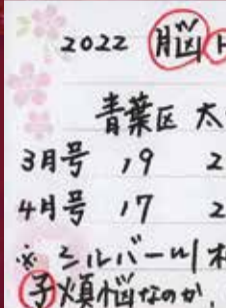 2022 脳
青葉区 太
3月号 19 2
4月号 17 2
※ シルバー川柳
子煩悩なのか、